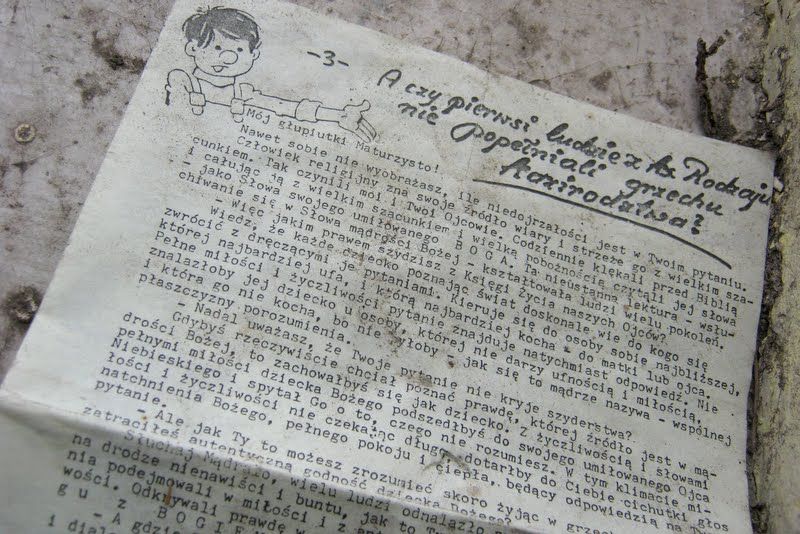 -3-
A czy pierwsi ludzie z ks. Rodzaju
nie popełniali grzechu
kazirodztwa?
Mój głupiutki Maturzysto!
Nawet sobie nie wyobrażasz, ile niedojrzałości jest w Twoim pytaniu.
Człowiek religijny zna swoje źródło wiary i strzeże go z wielkim sza-
cunkiem. Tak czynili mój i Twoi Ojcowie. Codziennie klękali przed Biblią
i całując ją z wielkim szacunkiem i wielką pobożnością czytali jej słowa
- jako Słowa swojego umiłowanego B O G A. Ta nieustanna lektura - wsłu-
chiwanie się w Słowa mądrości Bożej - kształtowała ludzi wielu pokoleń.
- Więc jakim prawem szydzisz z Księgi Życia naszych Ojców?
Wiedz, że każde dziecko poznając świat doskonale wie do kogo się
zwrócić z dręczącymi je pytaniami. Kieruje się do osoby sobie najbliższej,
której najbardziej ufa, i którą najbardziej kocha - do matki lub ojca.
Pełne miłości i życzliwości pytanie znajduje natychmiast odpowiedź. Nie
znalazłoby jej dziecko u osoby, której nie darzy ufnością i miłością,
i która go nie kocha, bo nie byłoby - jak się to mądrze nazywa - wspólnej
płaszczyzny porozumienia.
- Nadal uważasz, że Twoje pytanie nie kryje szyderstwa?
Gdybyś rzeczywiście chciał poznać prawdę, której źródło jest w mą-
drości Bożej, to zachowałbyś się jak dziecko. Z życzliwością i słowami
pełnymi miłości dziecka Bożego podszedłbyś do swojego umiłowanego Ojca
Niebieskiego i spytał Go o to, czego nie rozumiesz. W tym klimacie mi-
łości i życzliwości nie czekając długo dotarłby do Ciebie cichutki głos
natchnienia Bożego, pełnego pokoju i ciepła, będący odpowiedzią na
pytanie.
- Ale jak Ty to możesz zrozumieć skoro żyjąc w
zatraciłeś autentyczną godność dziecka Bożego?
Słuchaj mądralo, wielu ludzi odnalazło
na drodze nienawiści i buntu, jak to
nia podejmowali w miłości i z
wości. Odkrywali prawdę w
g u z B O G I E M
- A gdzie
i